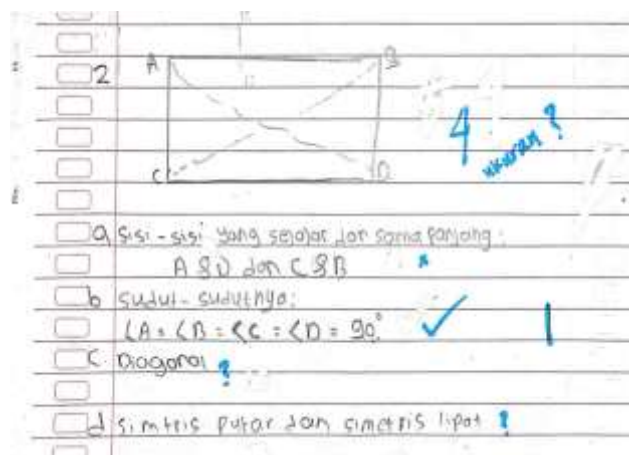 2
A B
4 ukuran ?
C D
a. sisi-sisi yang sejajar dan sama panjang:
A & D dan C & B x
b sudut-sudutnya:
∠A = ∠B = ∠C = ∠D = 90° ✓ 1
c. Diagonal ?
d simtris putar dan simetris lipat ?